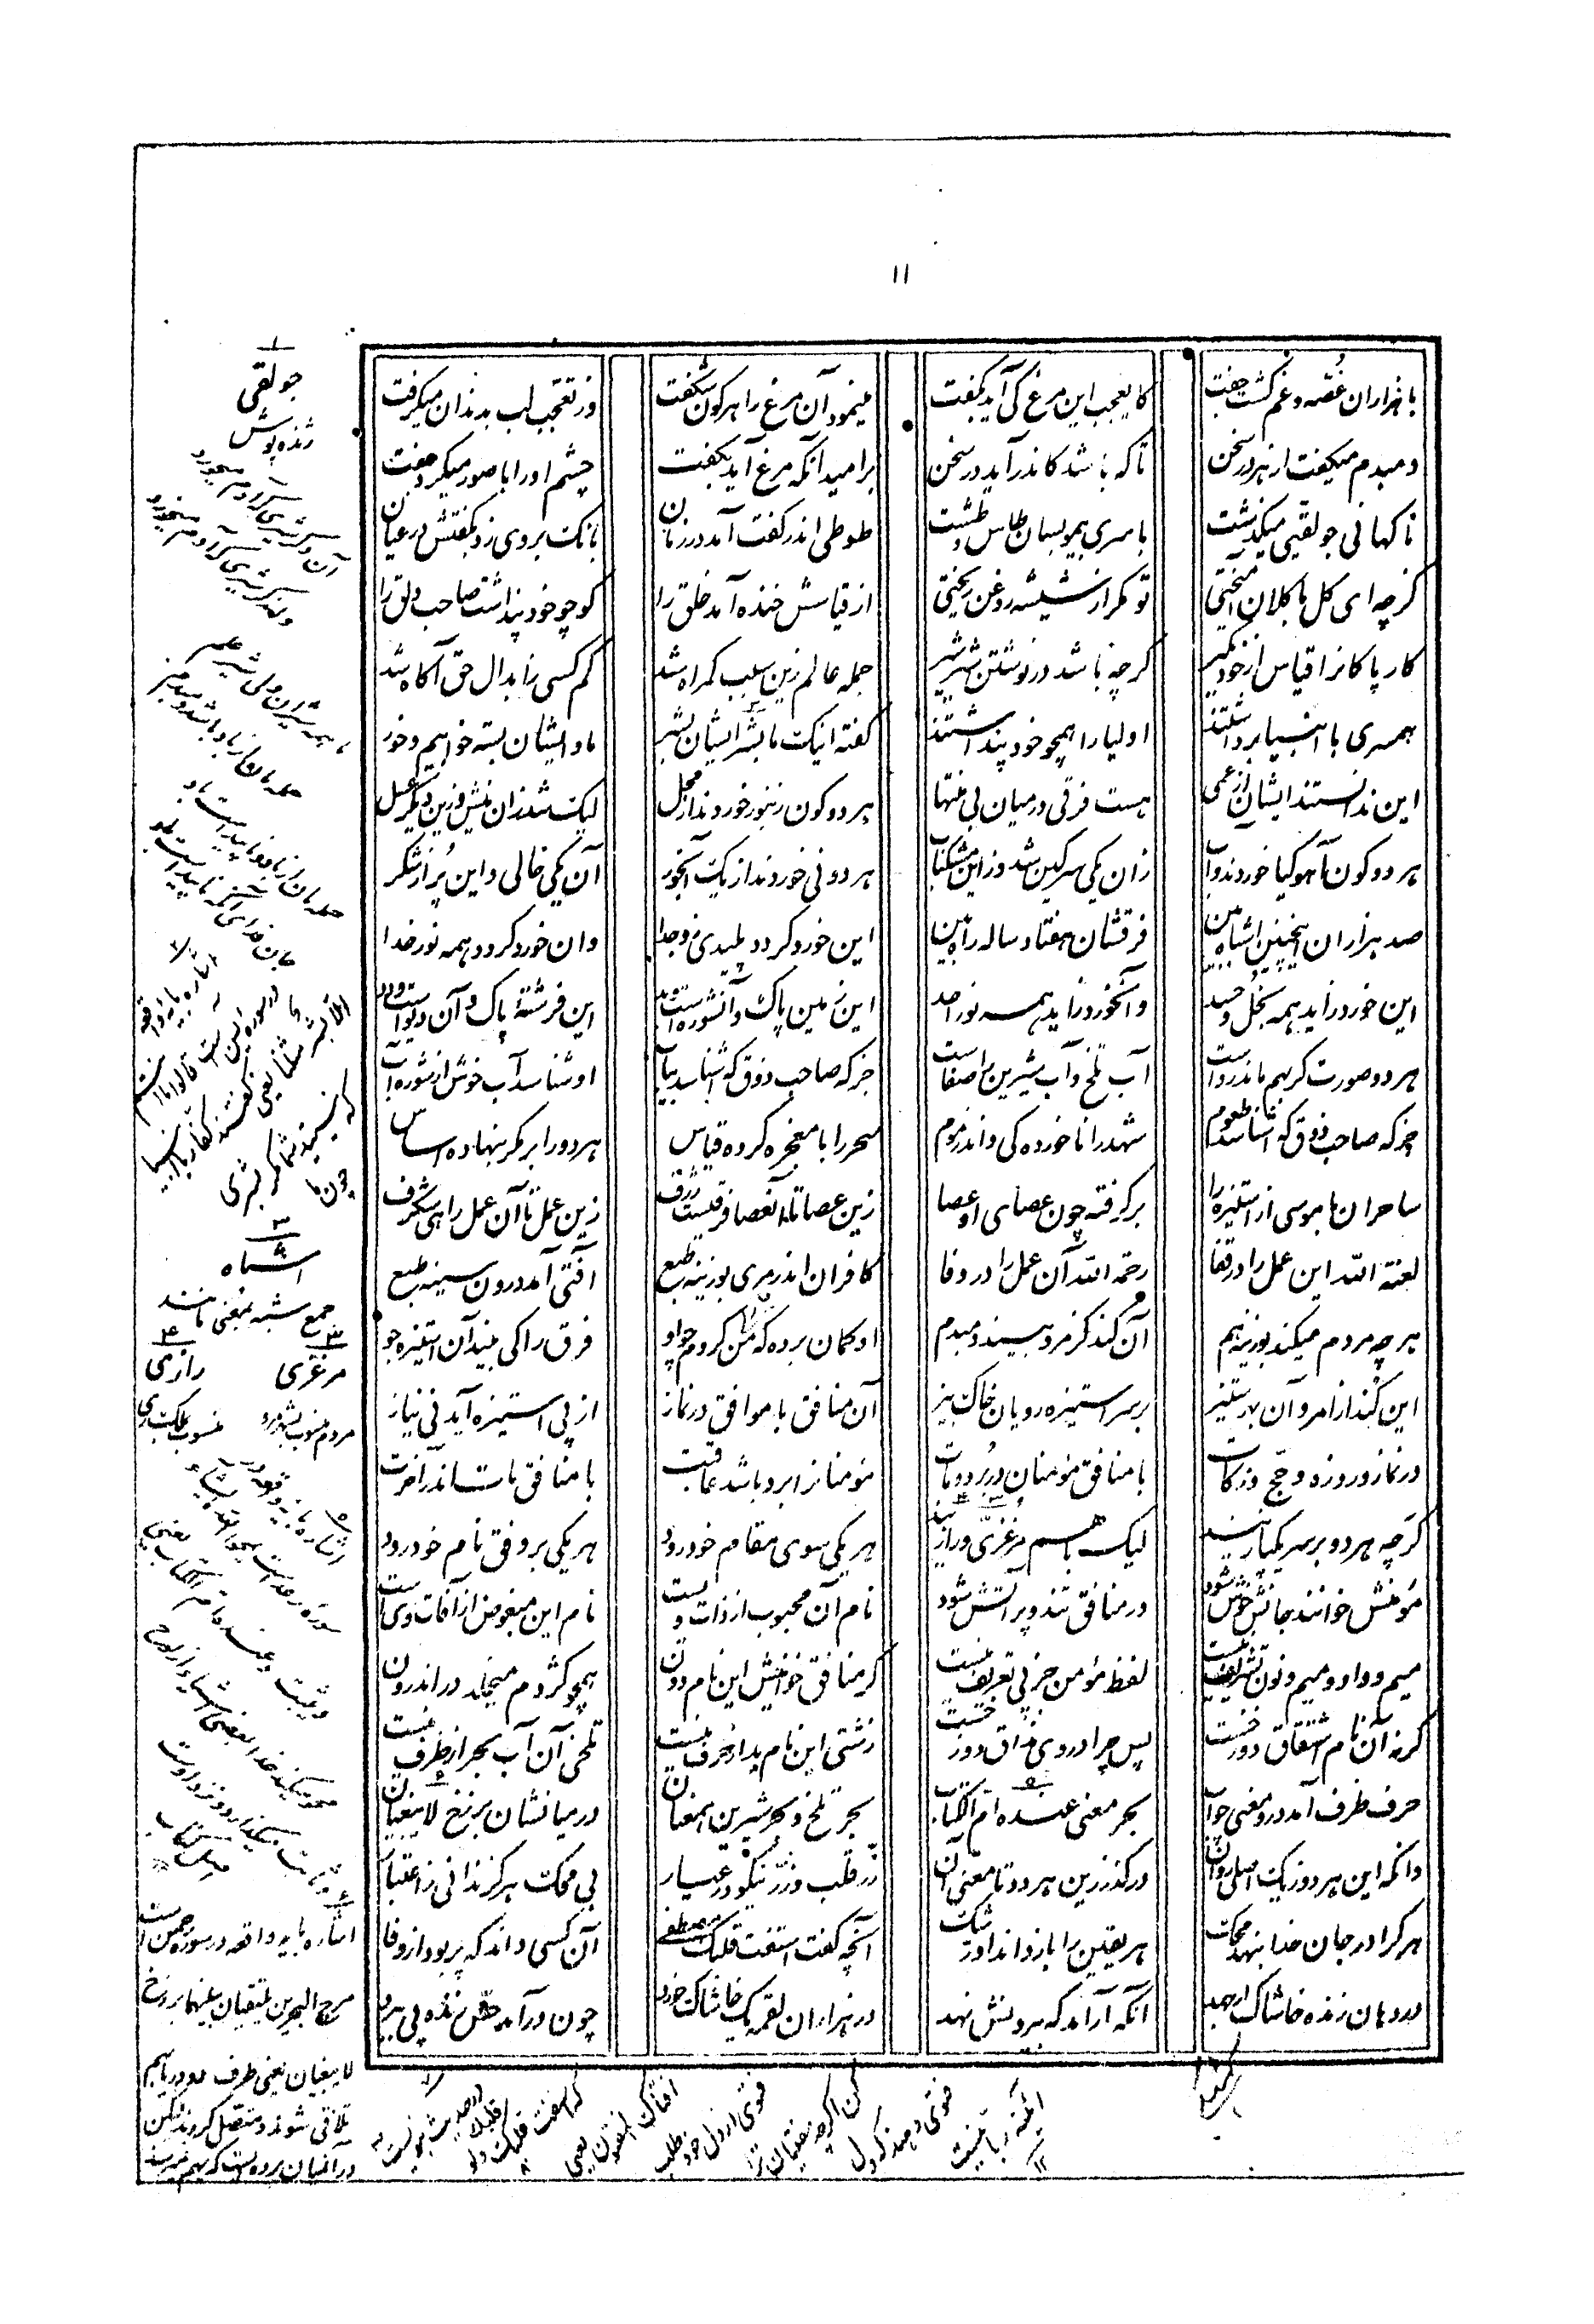 ۱۱
با هزاران غصه و غم گشت جفت کایعجب این مرغ کی آید بگفت مینمود آن مرغ را هر گون شگفت وز تعجب لب بدندان میگرفت
دمبدم میگفت از هر در سخن تا که باشد کاندر آید در سخن بر امید آنکه مرغ آید بگفت چشم او را با صور میکرد جفت
ناگهانی جولقیی میگذشت با سر بیمو بسان طاس و طشت طوطی اندر گفت آمد در زمان بانگ بر وی زد بگفتش در عیان
کز چه ای کل با کلان آمیختی تو مگر از شیشه روغن ریختی از قیاسش خنده آمد خلق را کو چو خود پنداشت صاحب دلق را
کار پاکانرا قیاس از خود مگیر گرچه باشد در نوشتن شیر شیر جمله عالم زین سبب گمراه شد کم کسی ز ابدال حق آگاه شد
همسری با انبیا برداشتند اولیا را همچو خود پنداشتند گفته اینک ما بشر ایشان بشر ما و ایشان بسته خوابیم و خور
این ندانستند ایشان از عمی هست فرقی در میان بی منتها هر دو گون زنبور خوردند از محل لیک شد زان نیش و زین دیگر عسل
هر دو گون آهو گیا خوردند و آب زان یکی سرگین شد و زین مشکناب هر دو نی خوردند از یک آبخور آن یکی خالی و این پر از شکر
صد هزاران اینچنین اشباه بین فرقشان هفتاد ساله راه بین این خورد گردد پلیدی زو جدا وان خورد گردد همه نور خدا
این خورد زاید همه بخل و حسد وآنخورد زاید همه نور احد این زمین پاک و آنشوره است و بد این فرشتهٔ پاک و آن دیو است و دد
هر دو صورت گر بهم ماند رواست آب تلخ و آب شیرین را صفاست جز که صاحب ذوق که اشناسد بیاب او شناسد آب خوش از شوره آب
جز که صاحب ذوق که اشناسد طعوم شهد را ناخورده کی داند ز موم سحر را با معجزه کرده قیاس هر دو را بر مکر بنهاده اساس
ساحران با موسی از استیزه را برگرفته چون عصای او عصا زین عصا تا آنعصا فرقیست ژرف زین عمل تا آن عمل راهی شگرف
لعنة الله این عمل را در قفا رحمة الله آن عمل را در وفا کافران اندر مری بوزینه طبع آفتی آمد درون سینه طبع
هر چه مردم میکند بوزینه هم آن کند کز مرد بیند دمبدم او گمان برده که من کردم چو او فرق را کی بیند آن استیزه جو
این کند از امر و آن بهر ستیز بر سر استیزه رویان خاک بیز آن منافق با موافق در نماز از پی استیزه آید نی نیاز
در نماز و روزه و حج و زکات با منافق مؤمنان در برد و مات مؤمنانرا برد باشد عاقبت با منافق مات اندر آخرت
گرچه هر دو بر سر یکبازیند لیک با هم مرغزی و رازیند هر یکی سوی مقام خود رود هر یکی بر وفق نام خود رود
مؤمنش خوانند جانش خوش شود ور منافق تند و پر آتش شود نام آن محبوب از ذات ویست نام این مبغوض از آفات ویست
میم و واو و میم و نون تشریف نیست لفظ مؤمن جز پی تعریف نیست گر منافق خوانیش این نام دون همچو کژدم میخلد در اندرون
گرنه آن نام اشتقاق دوزخست پس چرا در وی مذاق دوزخست زشتی این نام بد از حرف نیست تلخی آن آب بحر از ظرف نیست
حرف ظرف آمد درو معنی چو آب بحر معنی عنده ام الکتاب بحر تلخ و بحر شیرین همعنان در میانشان برزخ لا یبغیان
دانکه این هر دو ز یک اصلی روان درگذر زین هر دو تا معنی آن زر قلب و زر نیکو در عیار بی محک هرگز ندانی ز اعتبار
هر کرا در جان خدا بنهد محک هر یقین را باز داند او ز شک آنچه گفت استفت قلبک مصطفی آن کسی داند که پر بود از وفا
در دهان زنده خاشاک ار جهد آنگه آرامد که بیرونش نهد در هزاران لقمه یک خاشاک خورد چون درآمد حس زنده پی ببرد
۱
جولقی
ژنده پوش
اشباه
جمع شبه بمعنی مانند
۳
مرغزی
مردم منسوب بشهر مرو
۴
رازی
منسوب بملک ری
اشاره بآیه واقعه در سوره رحمن است
مرج البحرین یلتقیان بینهما برزخ
لا یبغیان یعنی طرف دو دریا بهم
تلاقی شوند و متصل گردند لیکن